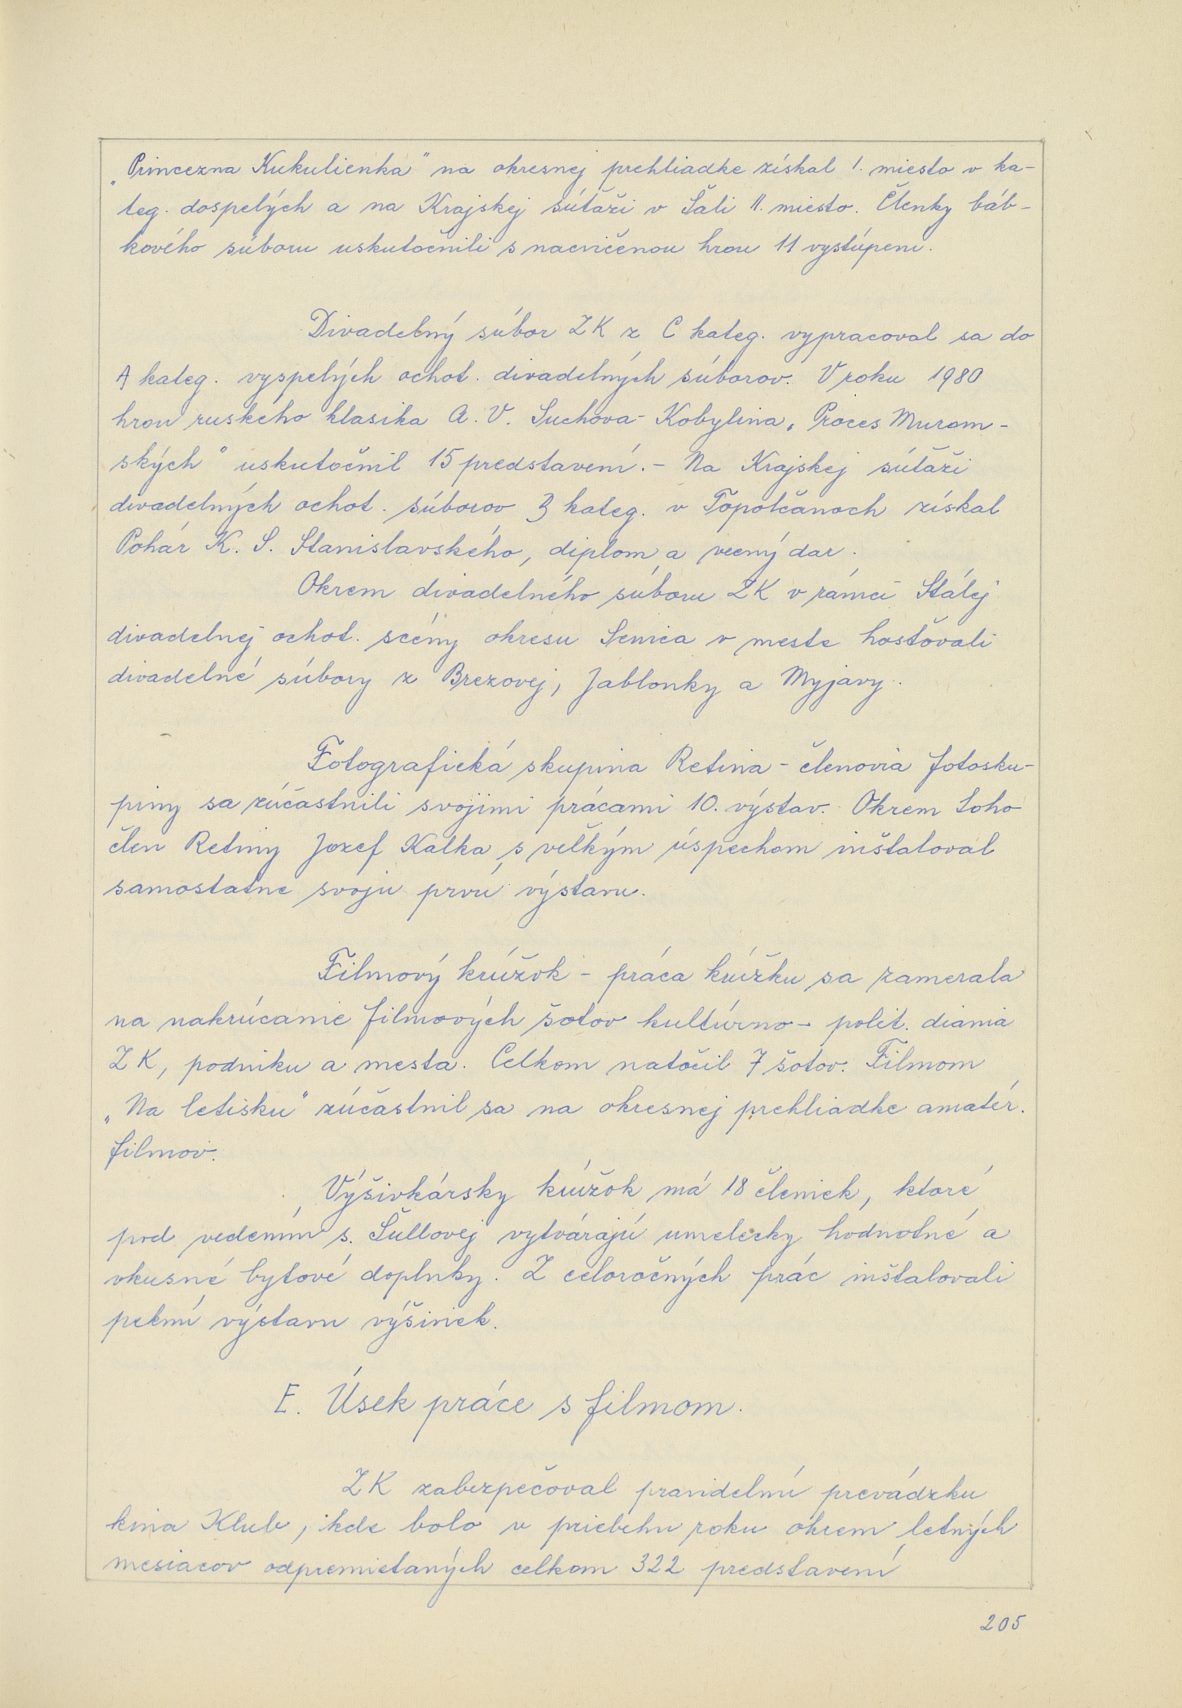 „Princezna Kukulienka" na okresnej prehliadke získal I. miesto v ka-
teg. dospelých a na Krajskej súťaži v Šali II. miesto. Členky báb-
kového súboru uskutočnili s nacvičenou hrou 11 vystúpení.
Divadelný súbor ZK z C kateg. vypracoval sa do
A kateg. vyspelých ochot. divadelných súborov. V roku 1980
hrou ruského klasika A. V. Suchova-Kobylina „Proces Murom-
ských" uskutočnil 15 predstavení. - Na Krajskej súťaži
divadelných ochot. súborov B kateg. v Topoľčanoch získal
Pohár K. S. Stanislavského, diplom a vecný dar.
Okrem divadelného súboru ZK v rámci Stálej
divadelnej ochot. scény okresu Senica v meste hosťovali
divadelné súbory z Brezovej, Jablonky a Myjavy.
Fotografická skupina Retina - členovia fotosku-
piny sa zúčastnili svojimi prácami 10. výstav. Okrem toho
člen Retiny Jozef Kalka s veľkým úspechom inštaloval
samostatne svoju prvú výstavu.
Filmový krúžok - práca krúžku sa zamerala
na nakrúcanie filmových šotov kultúrno - polit. diania
ZK, podniku a mesta. Celkom natočil 7 šotov. Filmom
„Na letisku" zúčastnil sa na okresnej prehliadke amatér.
filmov.
Výšivkársky krúžok má 18 členiek, ktoré
pod vedením s. Šullovej vytvárajú umelecky hodnotné a
vkusné bytové doplnky. Z celoročných prác inštalovali
peknú výstavu výšiviek.
E. Úsek práce s filmom.
ZK zabezpečoval pravidelnú prevádzku
kina Klub, kde bolo v priebehu roku okrem letných
mesiacov odpremietaných celkom 322 predstavení
205